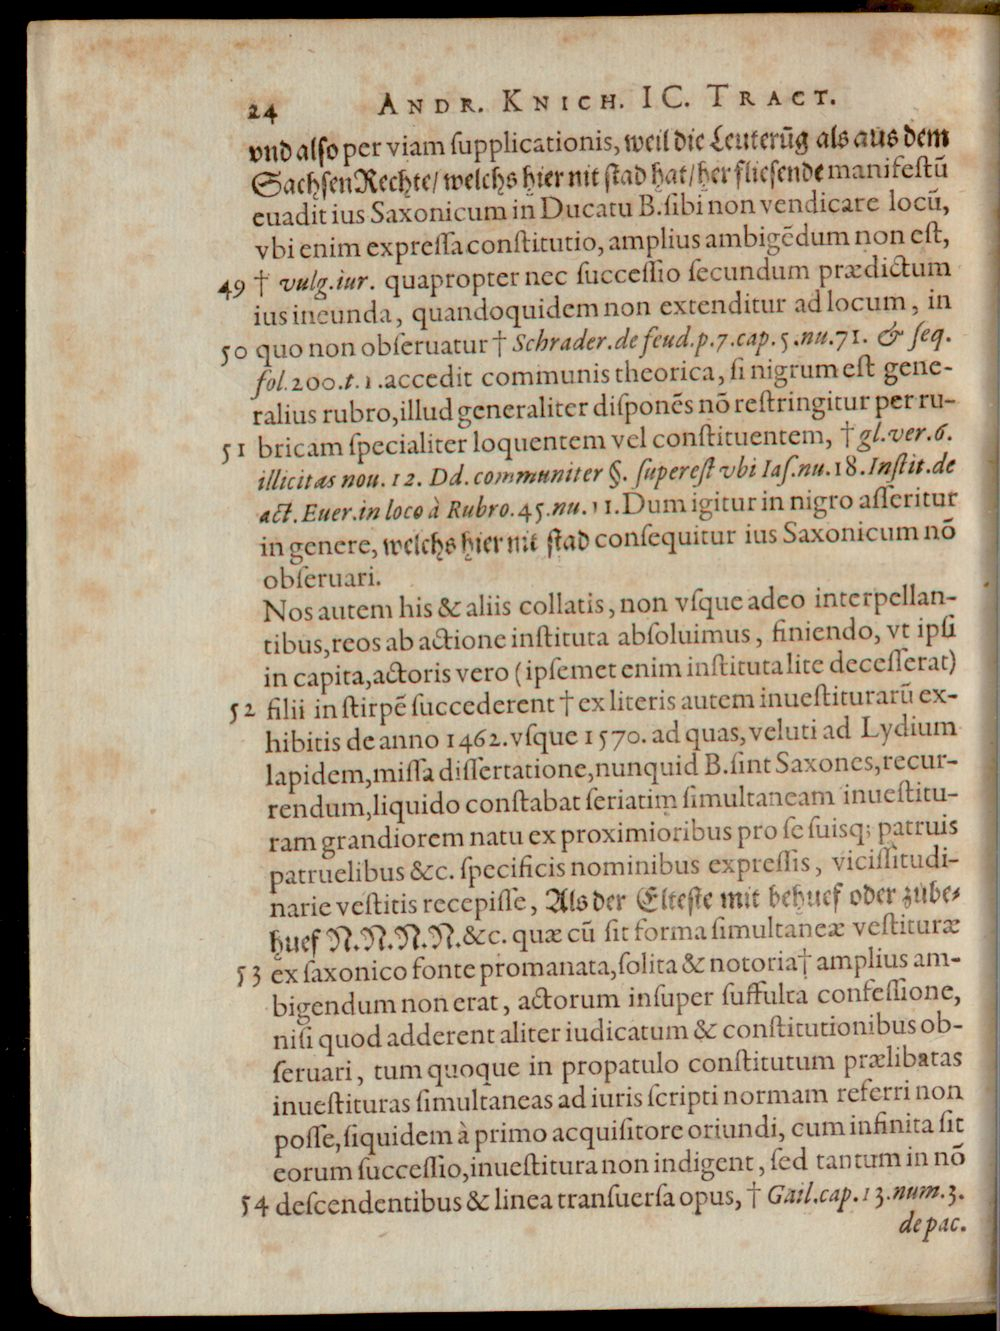 24 ANDR. KNICH. IC. TRACT.
vnd also per viam ſupplicationis, weil die Leuterūg als aus dem
SachsenRechte/ welchs hier nit stad hat/ her fliesende manifeſtū
euadit ius Saxonicum in Ducatu B. ſibi non vendicare locū,
vbi enim expreſſa conſtitutio, amplius ambigēdum non eſt,
49 † vulg. iur. quapropter nec ſucceſſio ſecundum prædictum
ius ineunda, quandoquidem non extenditur ad locum, in
50 quo non obſeruatur † Schrader. de feud. p. 7. cap. 5. nu. 71. & ſeq.
fol. 200. t. 1. accedit communis theorica, ſi nigrum eſt gene-
ralius rubro, illud generaliter diſponēs nō reſtringitur per ru-
51 bricam ſpecialiter loquentem vel conſtituentem, † gl. ver. 6.
illicitas nou. 12. Dd. communiter §. ſupereſt vbi Iaſ. nu. 18. Inſtit. de
act. Euer. in loco à Rubro. 45. nu. 11. Dum igitur in nigro aſſeritur
in genere, welchs hier nit stad conſequitur ius Saxonicum nō
obſeruari.
Nos autem his & aliis collatis, non vſque adeo interpellan-
tibus, reos ab actione inſtituta abſoluimus, finiendo, vt ipſi
in capita, actoris vero (ipſemet enim inſtituta lite deceſſerat)
52 filii in ſtirpē ſuccederent † ex literis autem inueſtiturarū ex-
hibitis de anno 1462. vſque 1570. ad quas, veluti ad Lydium
lapidem, miſſa diſſertatione, nunquid B. ſint Saxones, recur-
rendum, liquido conſtabat ſeriatim ſimultaneam inueſtitu-
ram grandiorem natu ex proximioribus pro ſe ſuisq; patruis
patruelibus &c. ſpecificis nominibus expreſſis, viciſſitudi-
narie veſtitis recepiſſe, Als der Elteste mit behuef oder zube-
huef N. N. N. N. &c. quæ cū ſit forma ſimultaneæ veſtituræ
53 ex ſaxonico fonte promanata, ſolita & notoria † amplius am-
bigendum non erat, actorum inſuper ſuffulta confeſſione,
niſi quod adderent aliter iudicatum & conſtitutionibus ob-
ſeruari, tum quoque in propatulo conſtitutum prælibatas
inueſtituras ſimultaneas ad iuris ſcripti normam referri non
poſſe, ſiquidem à primo acquiſitore oriundi, cum infinita ſit
eorum ſucceſſio, inueſtitura non indigent, ſed tantum in nō
54 deſcendentibus & linea tranſuerſa opus, † Gail. cap. 13. num. 3.
de pac.